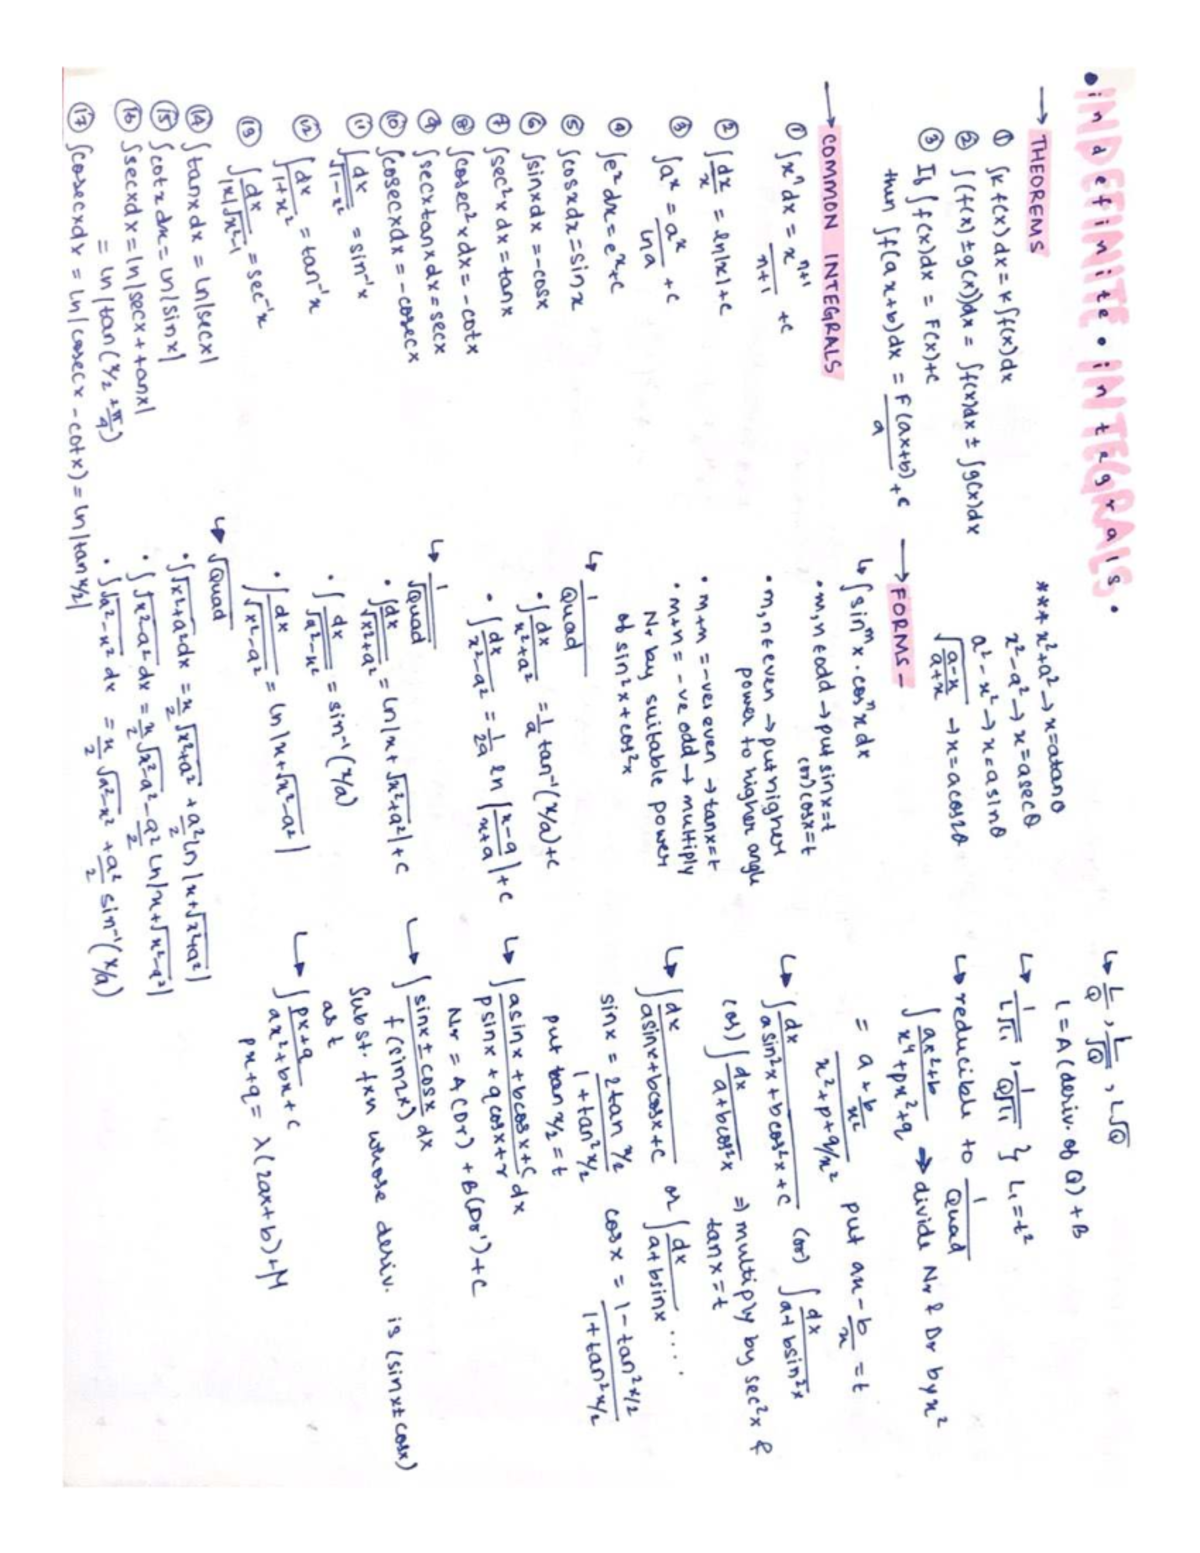 •iNDEFiNiTE • iNTEGRALS•
indefinite • integrals
→ THEOREMS
① ∫k f(x) dx = k∫f(x)dx
② ∫(f(x) ± g(x))dx = ∫f(x)dx ± ∫g(x)dx
③ If ∫f(x)dx = F(x)+c
then ∫f(ax+b)dx = F(ax+b)/a + c
→ COMMON INTEGRALS
① ∫xⁿ dx = xⁿ⁺¹/n+1 + c
② ∫dx/x = ln|x|+c
③ ∫aˣ = aˣ/ln a + c
④ ∫eˣ dx = eˣ+c
⑤ ∫cosxdx = sin x
⑥ ∫sinxdx = -cosx
⑦ ∫sec²xdx = tanx
⑧ ∫cosec²xdx = -cotx
⑨ ∫secxtanxdx = secx
⑩ ∫cosecxdx = -cosecx
⑪ ∫dx/√1-x² = sin⁻¹x
⑫ ∫dx/1+x² = tan⁻¹x
⑬ ∫dx/|x|√x²-1 = sec⁻¹x
⑭ ∫tanxdx = ln|secx|
⑮ ∫cotxdx = ln|sinx|
⑯ ∫secxdx = ln|secx+tanx|
= ln|tan(x/2 + π/4)
⑰ ∫cosecxdx = ln|cosecx - cotx) = ln|tan x/2|
*** x²+a² → x=atanθ
x²-a² → x=asecθ
a²-x² → x=asinθ
√a-x/a+x → x=acos2θ
→ FORMS –
↳ ∫sinᵐx·cosⁿxdx
• m,n ∈ odd → put sinx=t
(or) cosx=t
• m,n ∈ even → put higher
power to higher angle
• m+n = -ve, even → tanx=t
• m+n = -ve odd → multiply
Nr by suitable power
of sin²x+cos²x
↳ 1/Quad
• ∫dx/x²+a² = 1/a tan⁻¹(x/a)+c
• ∫dx/x²-a² = 1/2a ln |x-a/x+a|+c
↳ 1/√Quad
• ∫dx/√x²+a² = ln|x+√x²+a²|+c
• ∫dx/√a²-x² = sin⁻¹(x/a)
• ∫dx/√x²-a² = ln|x+√x²-a²|
↳ √Quad
• ∫√x²+a²dx = x/2 √x²+a² + a²/2 ln|x+√x²+a²|
• ∫√x²-a²dx = x/2 √x²-a² - a²/2 ln|x+√x²-a²|
• ∫√a²-x² dx = x/2 √a²-x² + a²/2 sin⁻¹(x/a)
↳ L/Q, L/√Q, L√Q
L = A (deriv. of Q) + B
↳ 1/L√L₁, 1/Q√L₁ } L₁=t²
↳ reducible to 1/Quad
∫ax²+b/x⁴+px²+q → divide Nr & Dr by x²
= a+b/x² / x²+p+q/x² put ax-b/x = t
↳ ∫dx/asin²x+bcos²x+c (or) ∫dx/a+bsin²x
(or) ∫dx/a+bcos²x ⇒ multiply by sec²x &
tanx=t
↳ ∫dx/asinx+bcosx+c or ∫dx/a+bsinx ....
sinx = 2tan x/2 / 1+tan²x/2 cosx = 1-tan²x/2 / 1+tan²x/2
put tan x/2 = t
↳ ∫asinx+bcosx+c/psinx+qcosx+r dx
Nr = A(Dr) + B(Dr')+C
↳ ∫sinx±cosx/f(sin2x) dx
Subst. fxn whose deriv. is (sinx±cosx)
as t
↳ ∫px+q/ax²+bx+c
px+q = λ(2ax+b)+M